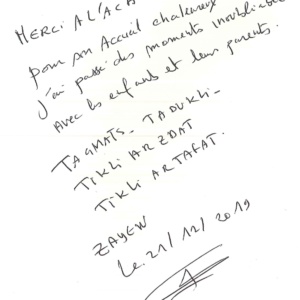 MERCI A L'ACA
pour son Accueil chaleureux
J'ai passé des moments inoubliables
avec les enfants et leurs parents.
TAGMATS_ TADUKLI_
TIKLI AR ZDAT
TIKLI AR TAFAT.
ZAYEN
Le 21/12/2019